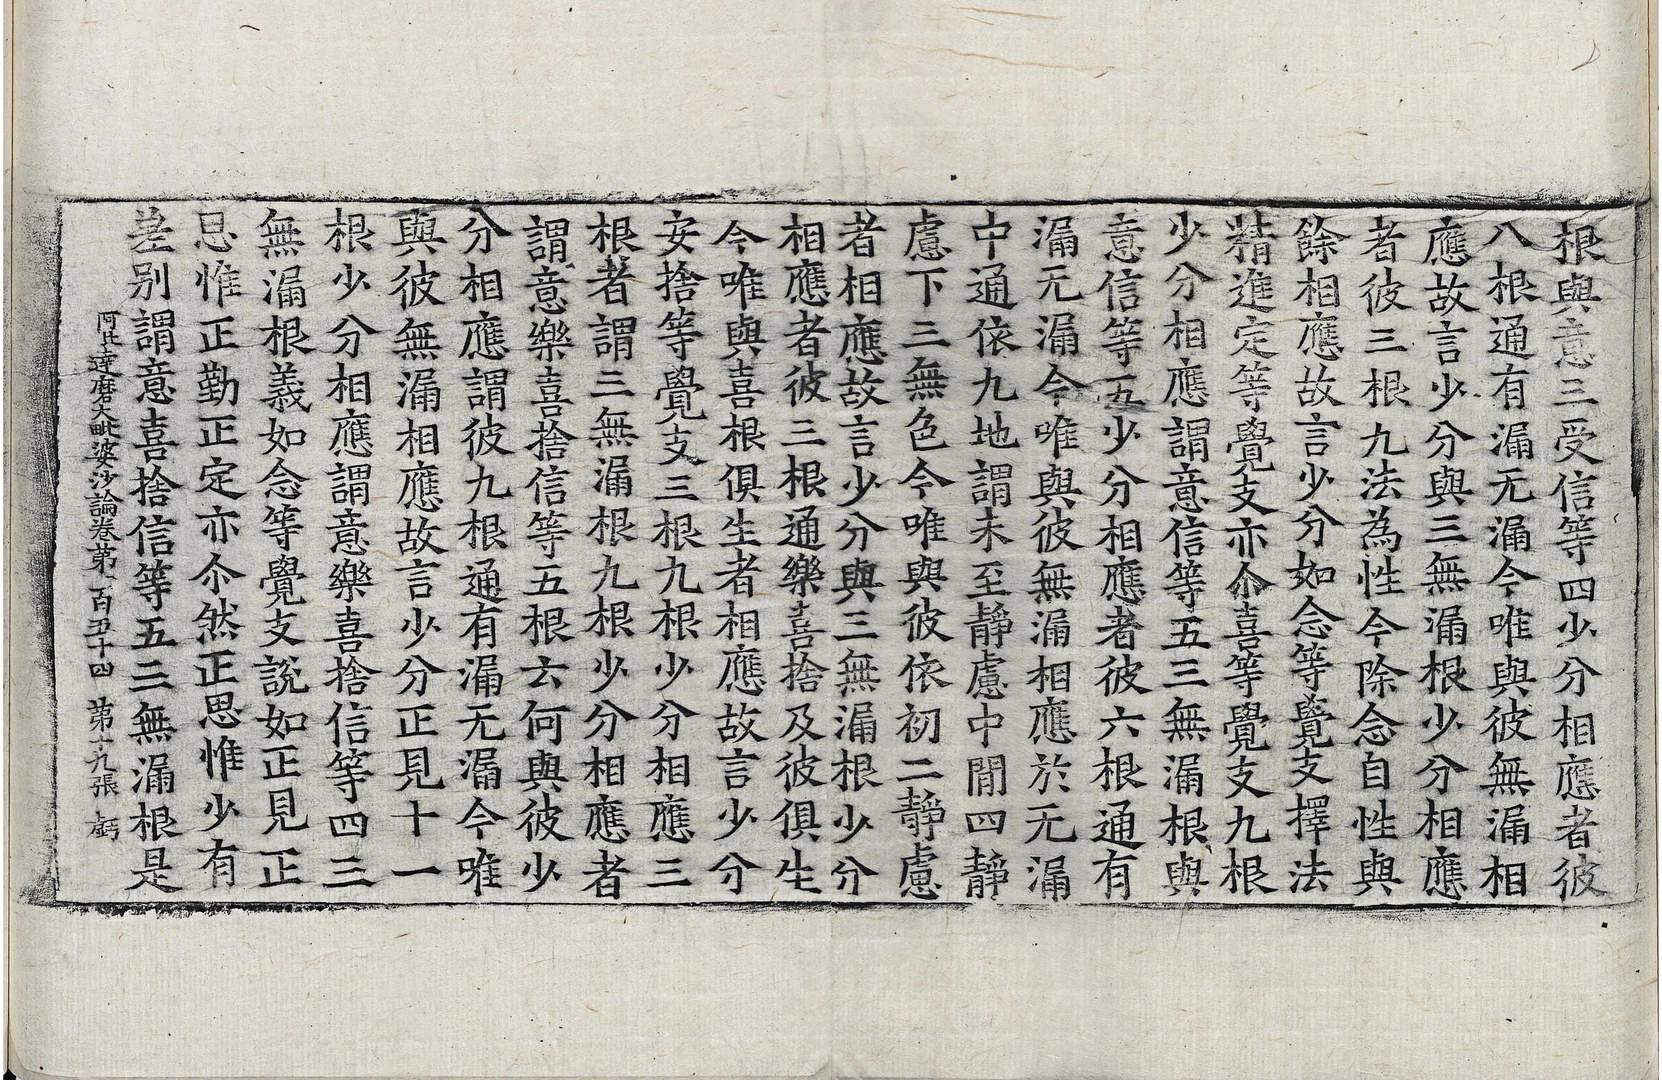 根與意三受信等四少分相應者彼
八根通有漏无漏今唯與彼無漏相
應故言少分與三無漏根少分相應
者彼三根九法為性今除念自性與
餘相應故言少分如念等覺支擇法
精進定等覺支亦尒喜等覺支九根
少分相應謂意信等五三無漏根與
意信等五少分相應者彼六根通有
漏无漏今唯與彼無漏相應於无漏
中通依九地謂未至靜慮中閒四靜
慮下三無色今唯與彼依初二靜慮
者相應故言少分與三無漏根少分
相應者彼三根通樂喜捨及彼俱生
今唯與喜根俱生者相應故言少分
安捨等覺支三根九根少分相應三
根者謂三無漏根九根少分相應者
謂意樂喜捨信等五根云何與彼少
分相應謂彼九根通有漏无漏今唯
與彼無漏相應故言少分正見十一
根少分相應謂意樂喜捨信等四三
無漏根義如念等覺支說如正見正
思惟正勤正定亦尒然正思惟少有
差別謂意喜捨信等五三無漏根是
阿毗達磨大毗婆沙論卷第一百五十四 第十九張 虧